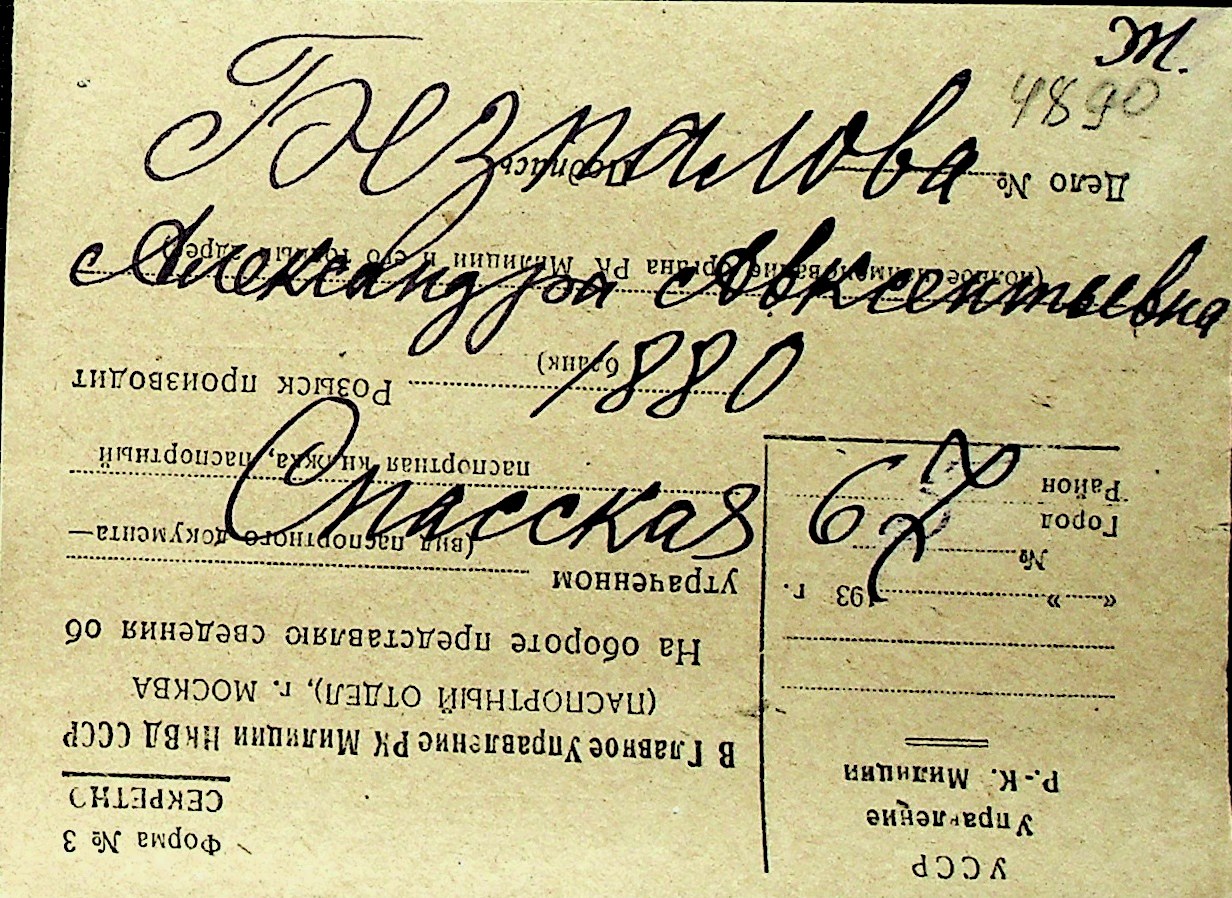 Ж.
4890
Безпалова
Александра Авксентьевна
1880
Спасская 67
УССР
Управление
Р.-К. Милиции
« » 193 г.
№
Город
Район
Форма № 3
СЕКРЕТНО
В Главное Управление РК Милиции НКВД СССР
(ПАСПОРТНЫЙ ОТДЕЛ), г. МОСКВА
На обороте представляю сведения об
утраченном
(вид паспортного документа—
паспортная книжка, паспортный
бланк)
Розыск производит
(полное наименование органа РК Милиции и его точный адрес)
Дело № Подпись